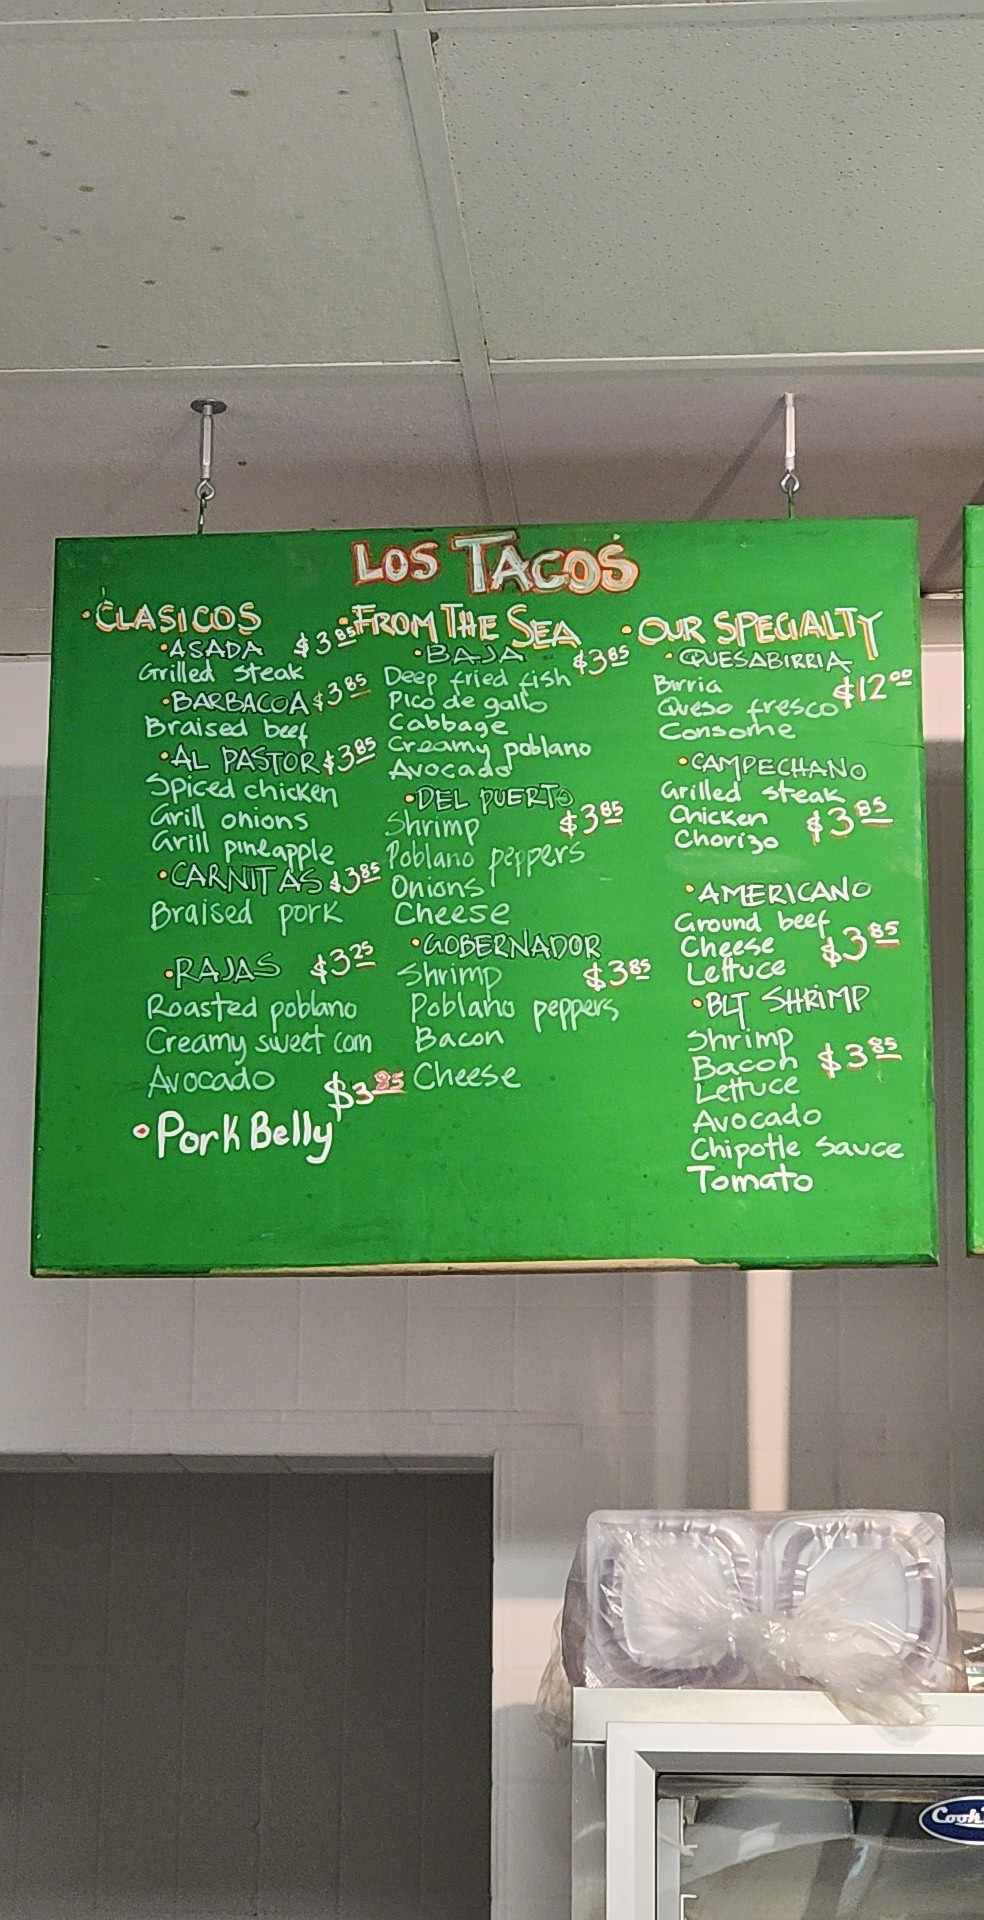 LOS TACOS
• CLASICOS
• ASADA $3.85
Grilled steak
• BARBACOA $3.85
Braised beef
• AL PASTOR $3.85
Spiced chicken
Grill onions
Grill pineapple
• CARNITAS $3.85
Braised pork
• RAJAS $3.25
Roasted poblano
Creamy sweet corn
Avocado
• Pork Belly $3.85
• FROM THE SEA
• BAJA $3.85
Deep fried fish
Pico de gallo
Cabbage
Creamy poblano
Avocado
• DEL PUERTO
Shrimp $3.85
Poblano peppers
Onions
Cheese
• GOBERNADOR
Shrimp $3.85
Poblano peppers
Bacon
Cheese
• OUR SPECIALTY
• QUESABIRRIA
Birria $12.00
Queso fresco
Consome
• CAMPECHANO
Grilled steak
Chicken $3.85
Chorizo
• AMERICANO
Ground beef
Cheese $3.85
Lettuce
• BLT SHRIMP
Shrimp
Bacon $3.85
Lettuce
Avocado
Chipotle sauce
Tomato